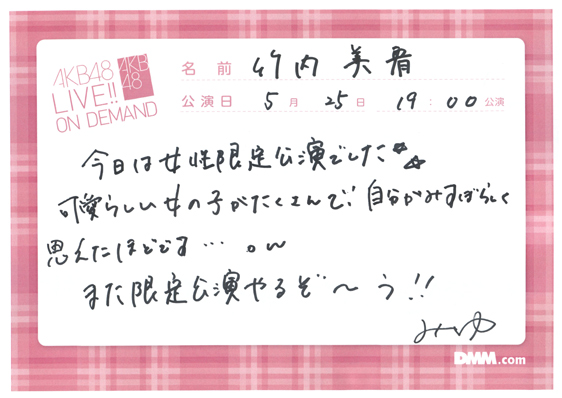 AKB48
LIVE!!
ON DEMAND
AKB
48
名前 竹内 美宥
公演日 5月 25日 19:00 公演
今日は女性限定公演でした☆☆
可愛らしい女の子がたくさんで! 自分がみすぼらしく
思えたほどです…。w
また限定公演やるぞ〜う!!
みゆ
DMM.com